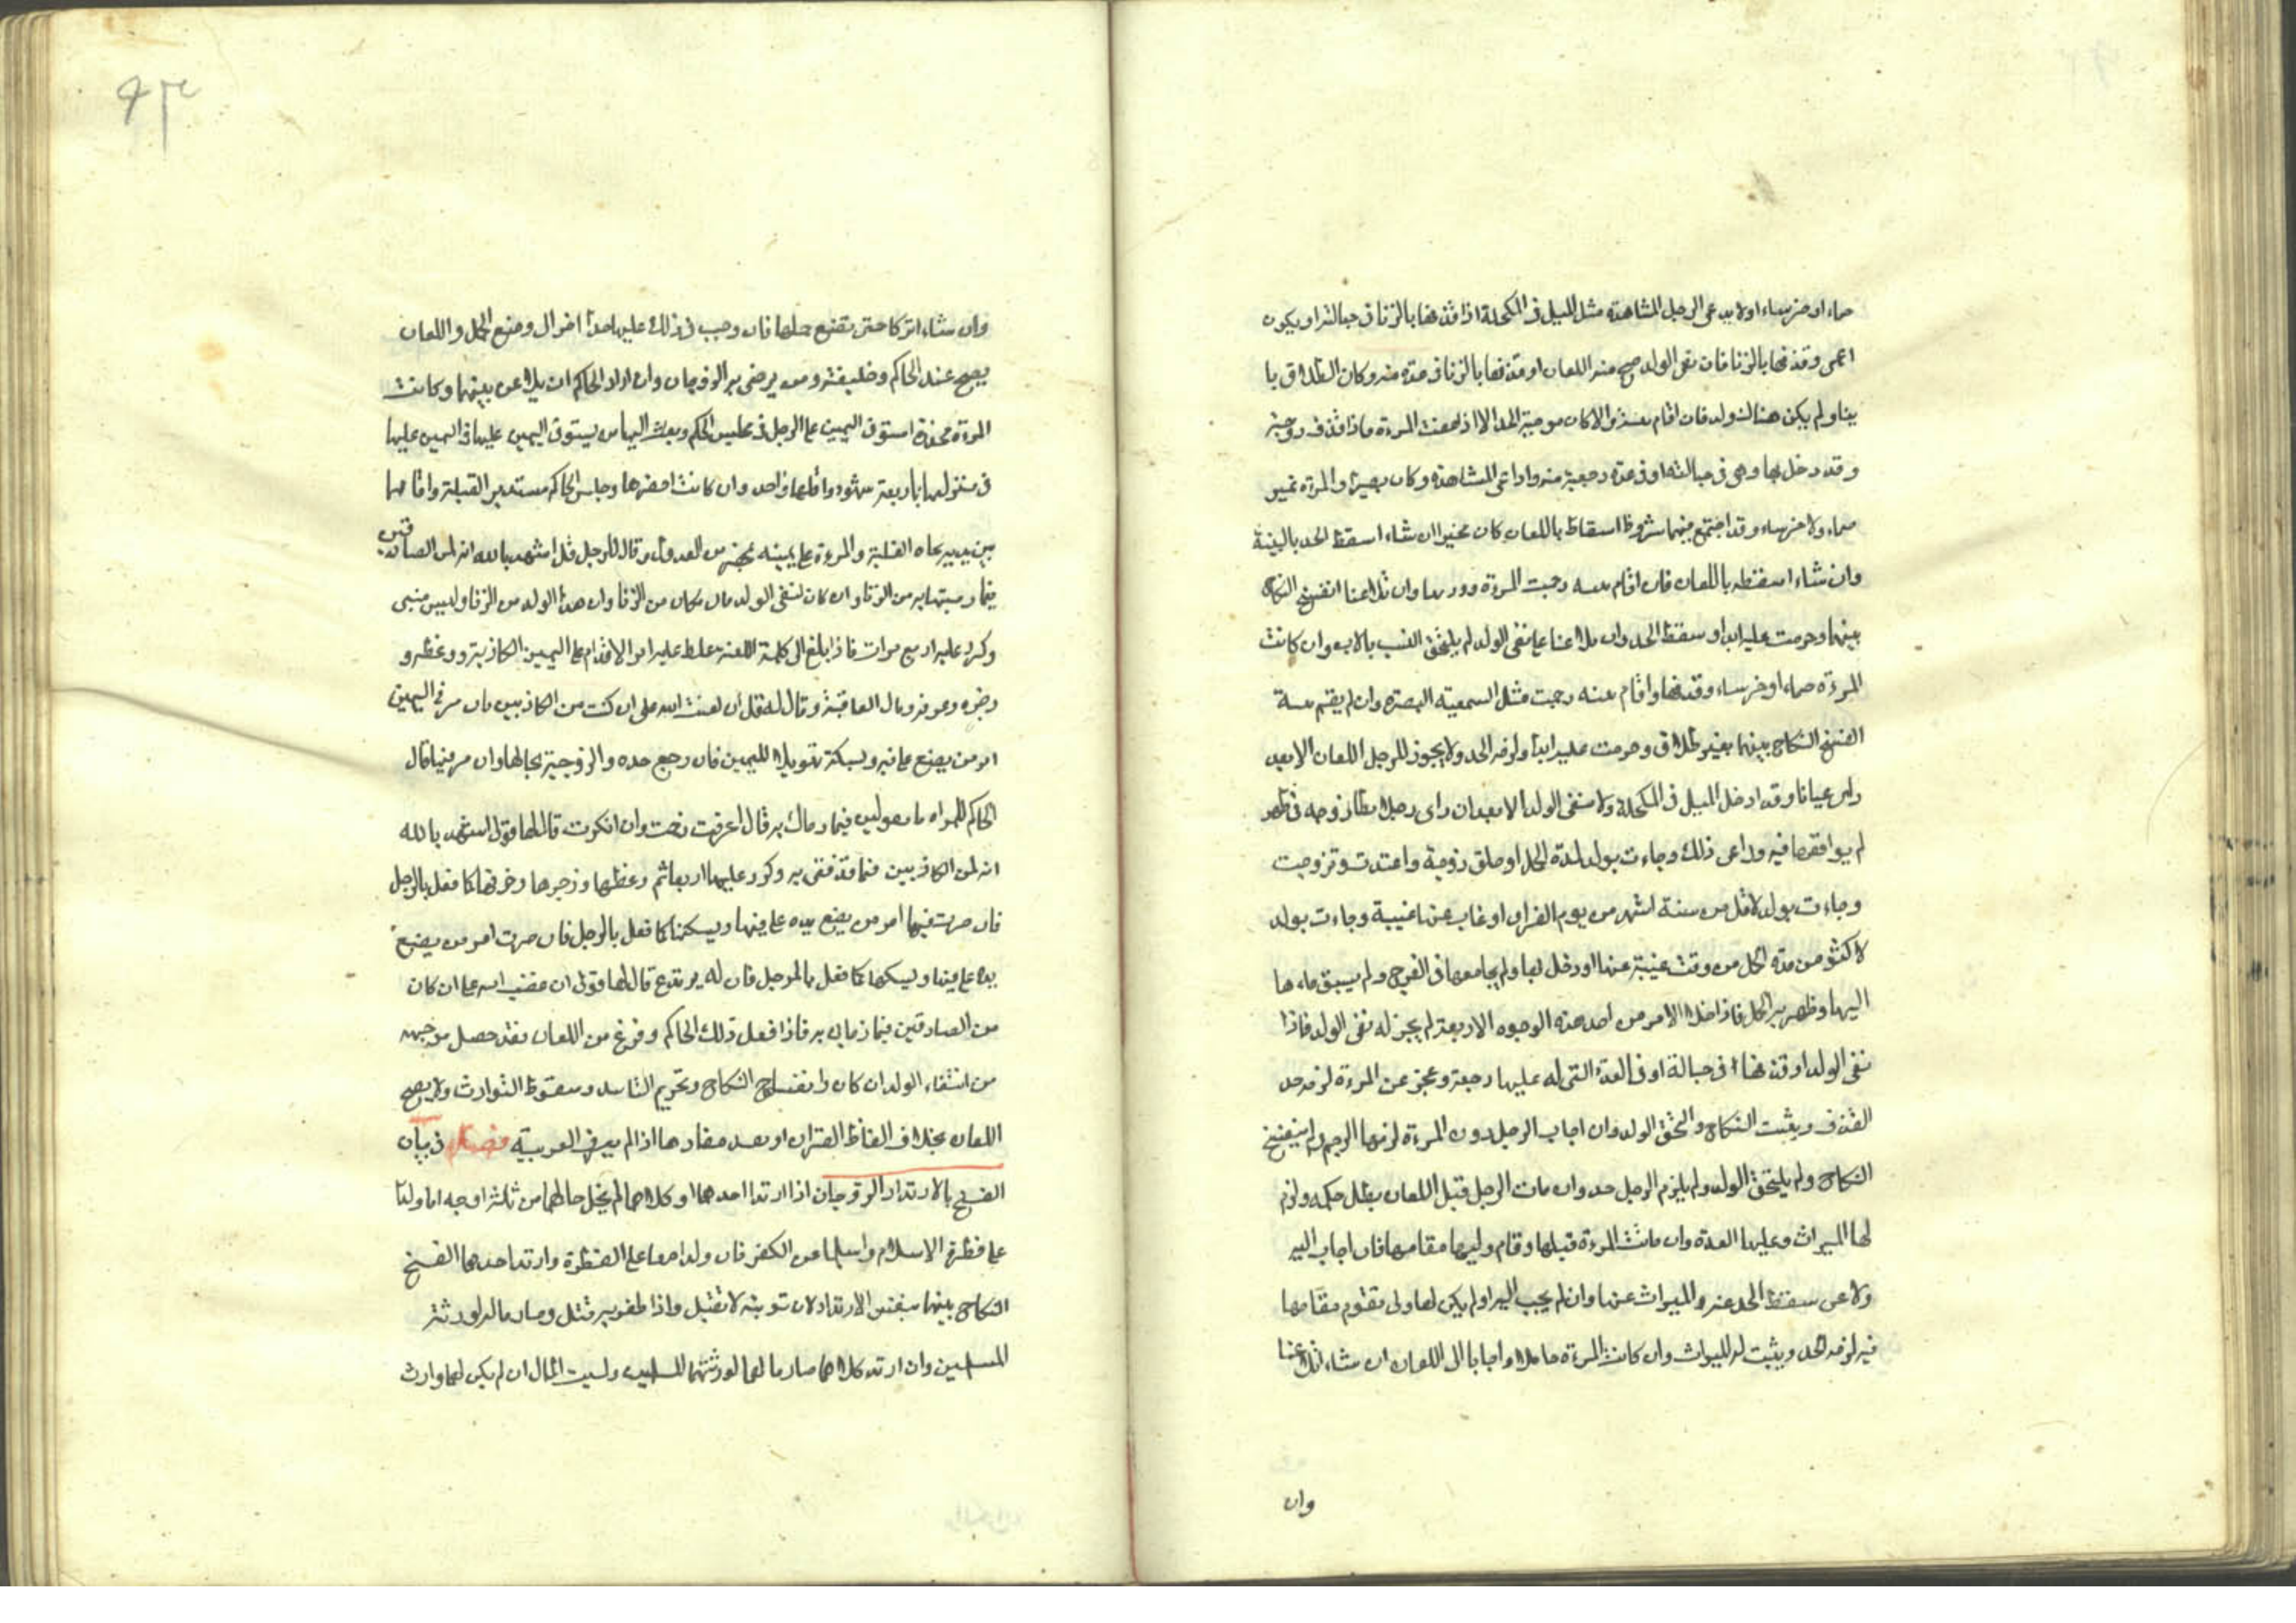 صماء او خرساء اولا يدعى الرجل المشاهدة مثل الميل فى المكحلة اذا قذفها بالزنا فى حبالته او يكون
اعمى وقذفها بالزنا فان نفى الولد صح منه اللعان او قذفها بالزنا فى عدة منه وكان الطلاق با
ينا ولم يكن هناك ولد فان اقام بينة والا كان موجبة الحد الا اذا عفت المرءة فاذا قذف زوجته
وقد دخل بها وهى فى حبالته او فى عدة رجعية منه وادعى المشاهدة وكان بصيرا والمرءة غير
صماء ولا خرساء وقد اجتمع فيهما شروط اسقاط باللعان كان مخيرا ان شاء اسقط الحد بالبينة
وان شاء اسقطه باللعان فان اقام بينة رجمت المرءة وان تلاعنا انفسخ النكاح
بينهما وحرمت عليه ابدا وسقط الحد وان تلاعنا على نفى الولد لم يلتحق النسب بالاب وان كانت
المرءة صماء او خرساء وقذفها واقام بينة رجمت مثل السميعة البصيرة وان لم يقم بينة
انفسخ النكاح بينهما بغير طلاق وحرمت عليه ابدا ولزمه الحد ولا يجوز للرجل اللعان الا بعد
راى عيانا وقد ادخل الميل فى المكحلة ولا ينفى الولد الا بعد ان راى رجلا يطأ زوجه فى طهر
لم يواقعها فيه وراعى ذلك وجاءت بولد لمدة الحمل او طلق زوجة واعتدت وتزوجت
وجاءت بولد لاقل من ستة اشهر من يوم الفراق او غاب عنها غيبة وجاءت بولد
لاكثر من مدة الحمل من وقت غيبته عنها او دخل بها ولم يجامعها فى الفرج ولم يسبق ماءها
اليها وظهر بها الحمل فاذا خلا الامر من احد هذه الوجوه الاربعة لم يجز له نفى الولد فاذا
نفى الولد او قذفها فى حبالة او فى العدة التى له عليها رجعة وعجز عن المرءة لزمه حد
القذف ويثبت النكاح والتحق الولد وان اجاب الرجل دون المرءة لزمها الرجم ولم ينفسخ
النكاح ولم يلتحق الولد ولم يلزم الرجل حد وان مات الرجل قبل اللعان بطل حكمه ولزم
لها الميراث وعليها العدة وان ماتت المرءة قبلها وقام وليها مقامها فان اجاب اليه
ولاعن سقط الحد عنه والميراث عنها وان لم يجب اليه او لم يكن لها ولى يقوم مقامها
فيه لزمه الحد ويثبت له الميراث وان كانت المرءة حاملا واجابا الى اللعان ان شاء تلاعنا
وان
٩٣
وان شاء اتركا حتى تضع حملها فان وجب فى ذلك عليها حدا اخر الى وضع الحمل واللعان
يصح عند الحاكم وخليفته ومن يرضى به الزوجان وان اراد الحاكم ان يلاعن بينهما وكانت
المرءة مخدرة استوفى اليمين على الرجل فى مجلس الحكم وبعث اليها من يستوفى اليمين عليها فى
فى منزلها باربعة شهود واقلها واحد وان كانت احضرها وجلس الحاكم مستدبر القبلة واقامهما
بين يديه تجاه القبلة والمرءة على يمينه من العدول وقال للرجل قل اشهد بالله انه لمن الصادقين
فيما رميتها به من الزنا وان كان لنفى الولد قال مكان من الزنا وان هذا الولد من الزنا وليس منى
وكرر عليه اربع مرات فاذا بلغ الى كلمة اللعنة غلظ عليه امر الاقدام على اليمين الكاذبة ووعظه و
زجره وخوفه وبال العاقبة وقال له قل ان لعنت الله على ان كنت من الكاذبين فان مر فى اليمين
امر من يضع على فيه ويسكته تهويلا لليمين فان رجع حده والزوجية بحالها وان مر فيها قال
الحاكم للمراه ما تقولين فيما رماك به فان اعترفت رجمت وان انكرت قال لها قولى اشهد بالله
انه لمن الكاذبين فيما قذفنى به وكرر عليها اربعا ثم وعظها وزجرها وخوفها كما فعل بالرجل
فان مرت فيها امر من يضع يده على فيها ويسكتها كما فعل بالرجل فان مرت امر من يضع
يده على فيها ويسكتها كما فعل بالرجل فان لم يرتدع قال لها قولى ان غضب الله على ان كان
من الصادقين فيما رمانى به فاذا فعل ذلك الحاكم وفرغ من اللعان فقد حصل موجبه
من انتفاء الولد ان كان وانفساخ النكاح وتحريم التابيد وسقوط التوارث ولا يصح
اللعان بخلاف الفاظ القران او بعد مفادها اذا لم يعرف العربية فصل فى بيان
الفسخ بالارتداد الزوجان اذا ارتدا احدهما او كلاهما لم يخل حالهما من ثلثة اوجه اما ولدا
على فطرة الاسلام واسلما عن الكفر فان ولدا معا على الفطرة وارتد احدهما انفسخ
النكاح بينهما بنفس الارتداد لان توبته لا تقبل واذا ظفر به قتل وصار ماله لورثته
المسلمين وان ارتد كلاهما صار مالهما لورثتهما المسلمين ولبيت المال ان لم يكن لهما وارث